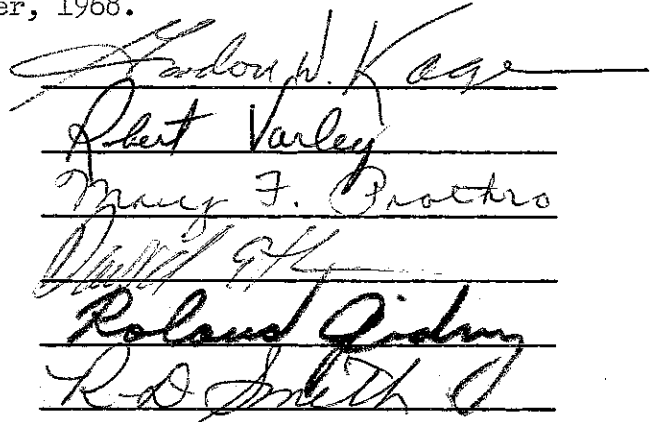 er, 1968.
Gordon W. Kage
Robert Varley
Mary F. Prothro
David
Roland Gidney
R D Smith